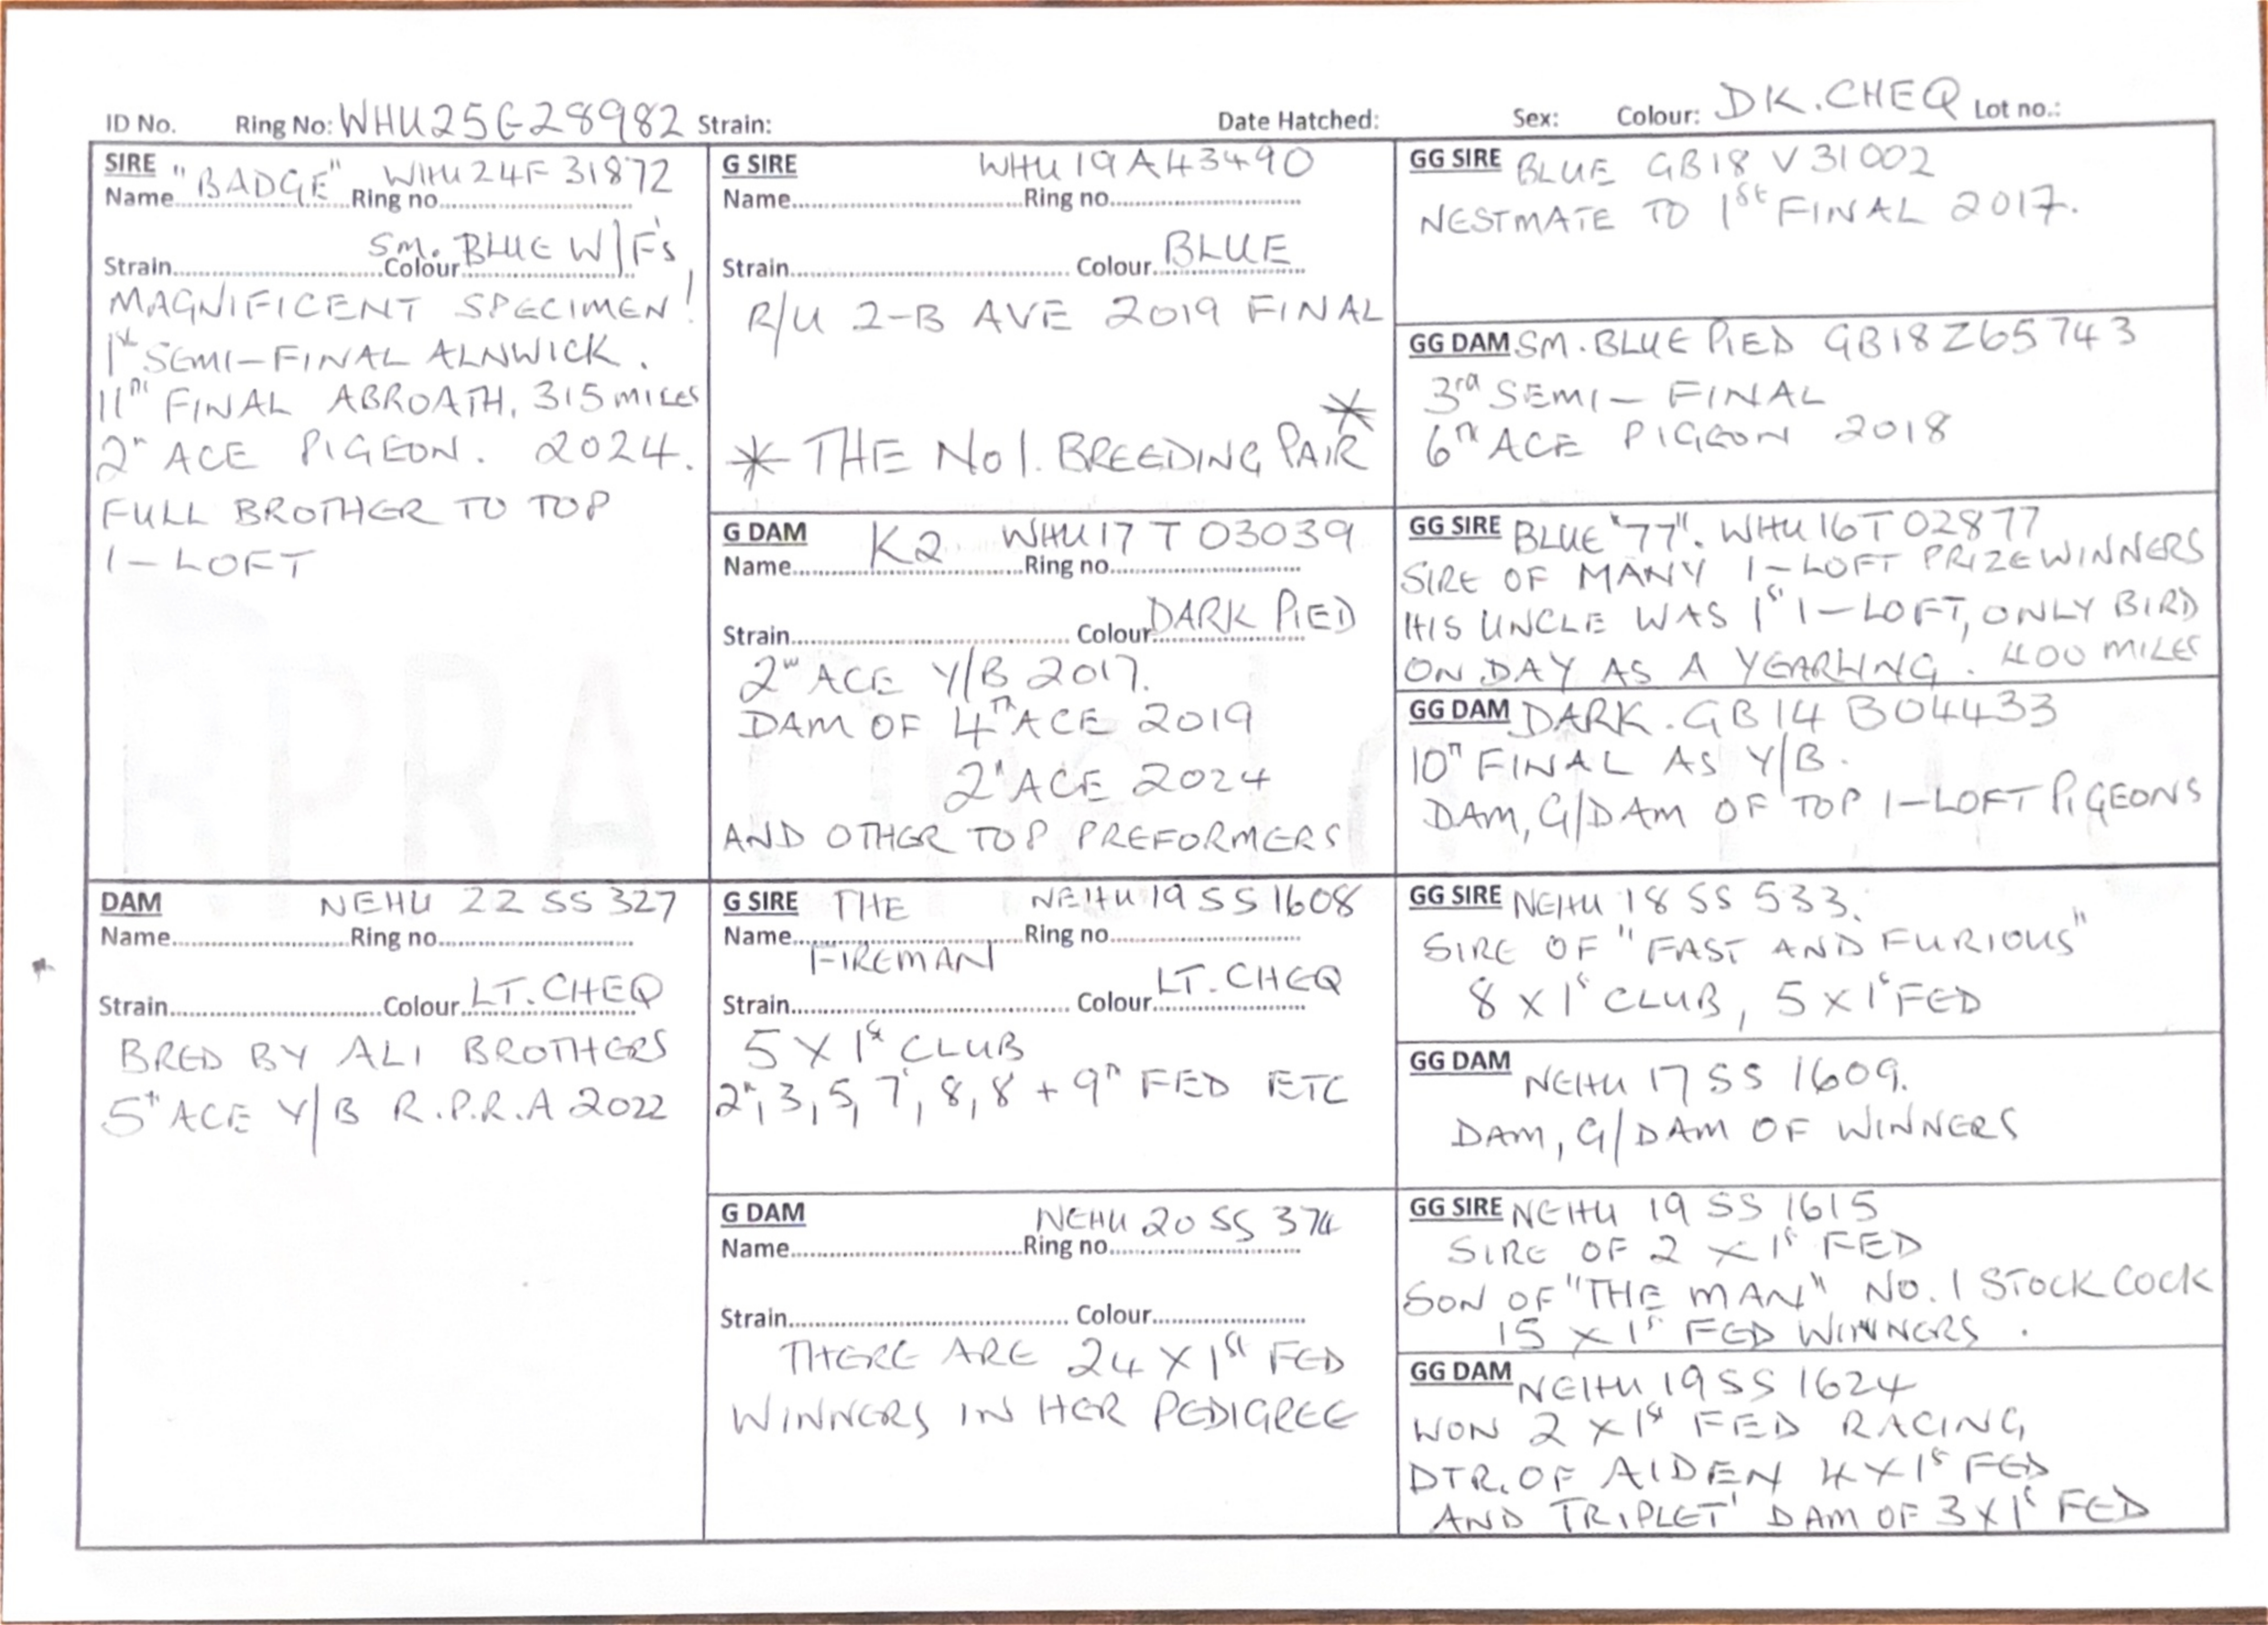 ID No. Ring No: WHU25G28982 Strain: Date Hatched: Sex: Colour: DK. CHEQ Lot no.:
SIRE
"BADGE" WHU24F31872
Name Ring no
SM. BLUE W/F's
Strain Colour
MAGNIFICENT SPECIMEN!
1st SEMI-FINAL ALNWICK.
11TH FINAL ABROATH, 315 MILES
2n ACE PIGEON. 2024.
FULL BROTHER TO TOP
1-LOFT
G SIRE WHU19A43490
Name Ring no
Strain Colour BLUE
R/U 2-B AVE 2019 FINAL
* THE No 1. BREEDING PAIR *
G DAM K2 WHU17T03039
Name Ring no
Strain Colour DARK PIED
2nd ACE Y/B 2017.
DAM OF 4TH ACE 2019
2n ACE 2024
AND OTHER TOP PREFORMERS
GG SIRE BLUE GB18V31002
NESTMATE TO 1st FINAL 2017.
GG DAM SM. BLUE PIED GB18Z65743
3rd SEMI-FINAL
6TH ACE PIGEON 2018
GG SIRE BLUE "77". WHU16T02877
SIRE OF MANY 1-LOFT PRIZEWINNERS
HIS UNCLE WAS 1st 1-LOFT, ONLY BIRD
ON DAY AS A YEARLING. 400 MILES
GG DAM DARK. GB14B04433
10TH FINAL AS Y/B.
DAM, G/DAM OF TOP 1-LOFT PIGEONS
DAM NEHU 22 SS 327
Name Ring no
Strain Colour LT. CHEQ
BRED BY ALI BROTHERS
5th ACE Y/B R.P.R.A 2022
G SIRE THE NEHU 19 SS 1608
Name Ring no
FIREMAN
Strain Colour LT. CHEQ
5 X 1st CLUB
2n, 3, 5, 7, 8, 8 + 9n FED ETC
G DAM NEHU 20 SS 374
Name Ring no
Strain Colour
THERE ARE 24 X 1st FED
WINNERS IN HER PEDIGREE
GG SIRE NEHU 18 SS 533.
SIRE OF "FAST AND FURIOUS"
8 X 1st CLUB, 5 X 1st FED
GG DAM
NEHU 17 SS 1609.
DAM, G/DAM OF WINNERS
GG SIRE NEHU 19 SS 1615
SIRE OF 2 X 1st FED
SON OF "THE MAN" NO. 1 STOCK COCK
15 X 1st FED WINNERS.
GG DAM NEHU 19 SS 1624
WON 2 X 1st FED RACING
DTR. OF AIDEN 4 X 1st FED
AND TRIPLET' DAM OF 3 X 1st FED